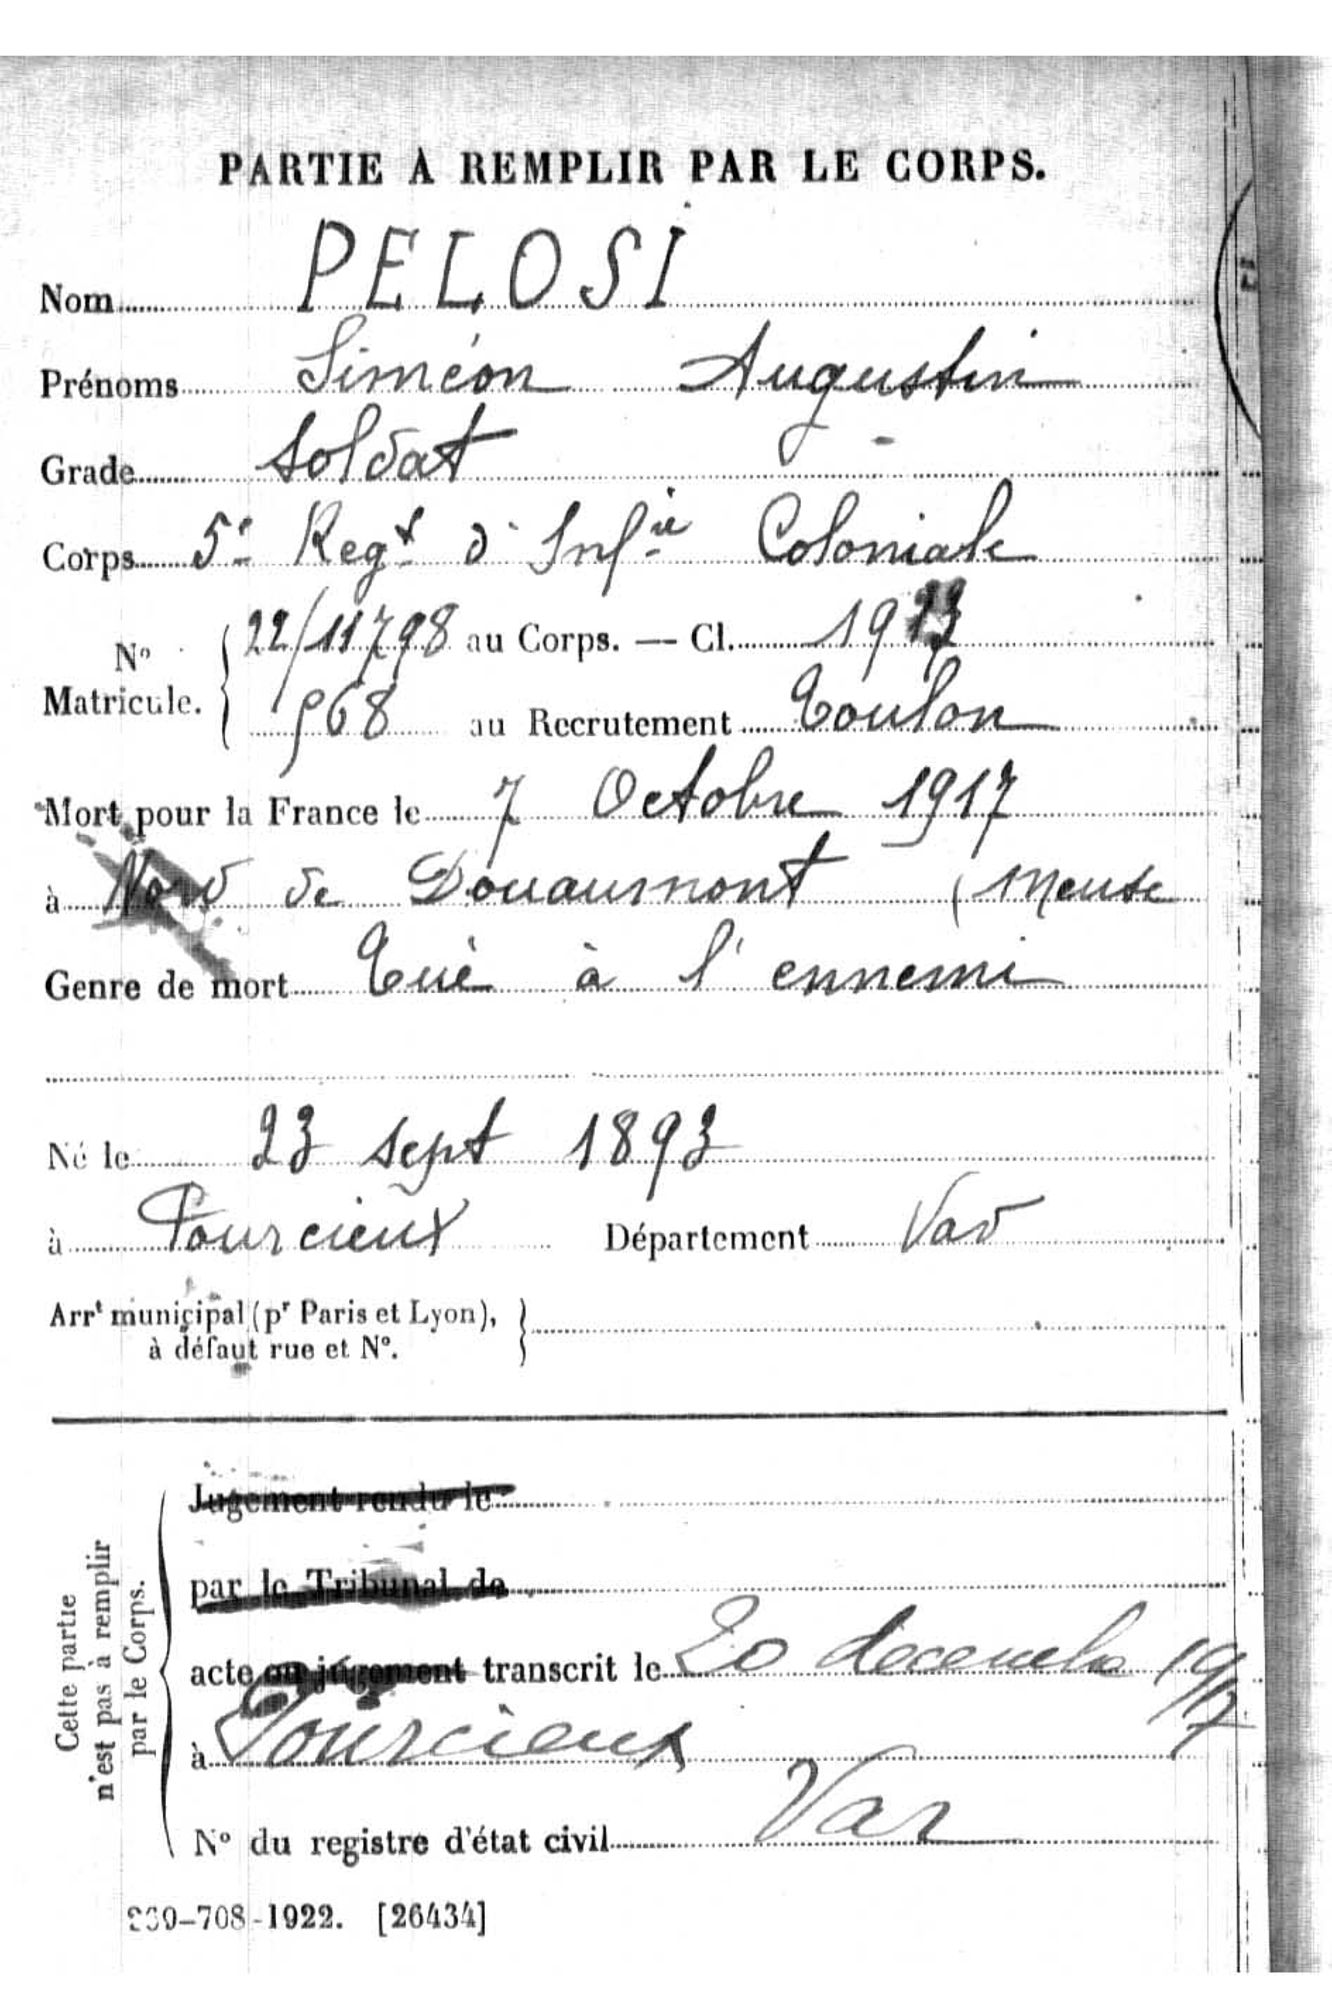 PARTIE À REMPLIR PAR LE CORPS.
Nom PELOSI
Prénoms Siméon Augustin
Grade Soldat
Corps 5e Regt d'Infie Coloniale
No Matricule. 22/11798 au Corps. — Cl. 1913
968 au Recrutement Toulon
Mort pour la France le 7 Octobre 1917
à Nord de Douaumont (Meuse
Genre de mort Tué à l'ennemi
Né le 23 sept 1893
à Pourcieux Département Var
Arrt municipal (pr Paris et Lyon),
à défaut rue et No.
Cette partie
n'est pas à remplir
par le Corps.
Jugement rendu le
par le Tribunal de
acte ou jugement transcrit le 20 decembre 1917
à Pourcieux
Var
No du registre d'état civil
-708-1922. [26434]